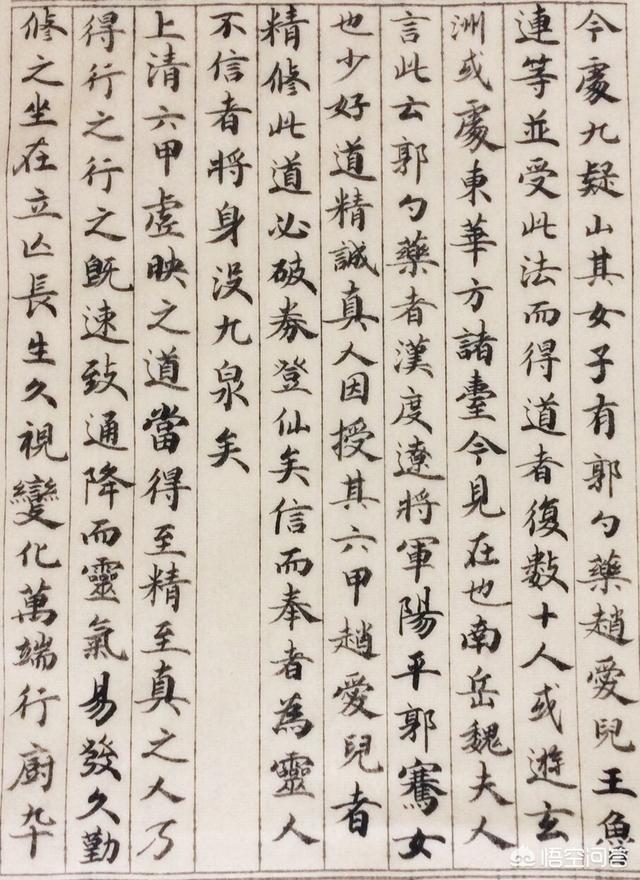 今處九疑山其女子有郭勺藥趙愛兒王魚
連等並受此法而得道者復數十人或遊玄
洲或處東華方諸臺今見在也南岳魏夫人
言此云郭勺藥者漢度遼將軍陽平郭騫女
也少好道精誠真人因授其六甲趙愛兒者
精修此道必破券登仙矣信而奉者為靈人
不信者將身没九泉矣
上清六甲虛映之道當得至精至真之人乃
得行之行之既速致通降而靈氣易發久勤
修之坐在立亾長生久視變化萬端行廚卒
悟空问答